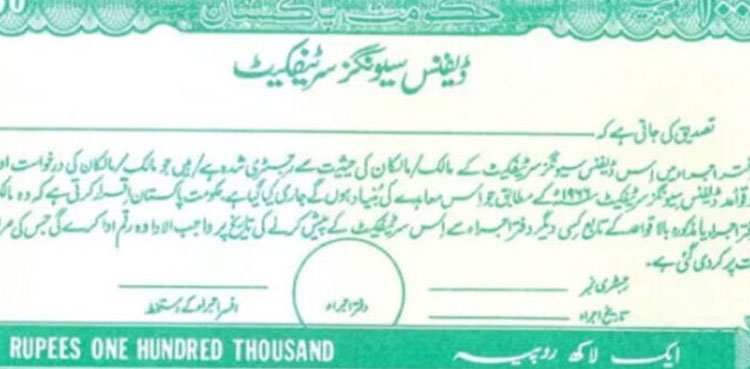 حکومت پاکستان
ڈیفنس سیونگز سرٹیفکیٹ
تصدیق کی جاتی ہے کہ
اجراء میں اس ڈیفنس سیونگز سرٹیفکیٹ کے مالک/مالکان کی حیثیت سے رجسٹری شدہ ہے/ہیں جو مالک/مالکان کی درخواست
قواعد ڈیفنس سیونگز سرٹیفکیٹ ۱۹۶۶ء کے مطابق جو اس معاہدے کی بنیاد ہوں گے جاری کیا گیا ہے حکومت پاکستان اقرار کرتی ہے کہ وہ
اجراء یا مذکورہ بالا قواعد کے تابع کسی دیگر دفتر اجراء سے اس سرٹیفکیٹ کے پیش کرنے کی تاریخ پر واجب الادا وہ رقم ادا کرے گی جس کی
پر کر دی گئی ہے۔
رجسٹری نمبر
تاریخ اجراء
دفتر اجراء
افسر اجراء کے دستخط
ایک لاکھ روپیہ
RUPEES ONE HUNDRED THOUSAND